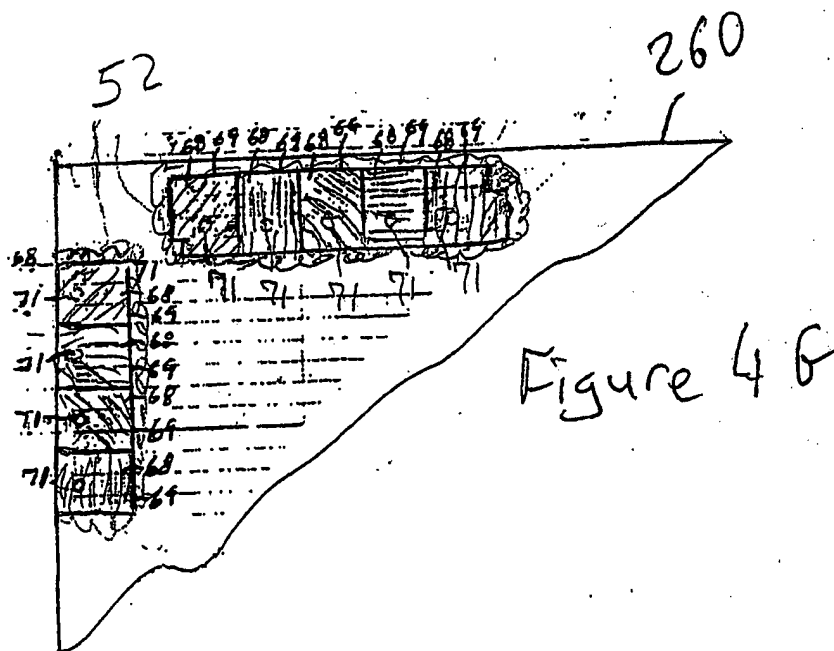 260
52
68 69 68 69 68 69 68 69 68 69
71 71 71 71 71
68 71
71 68
69
68
71 69
68
71 69
68
71 69
Figure 4